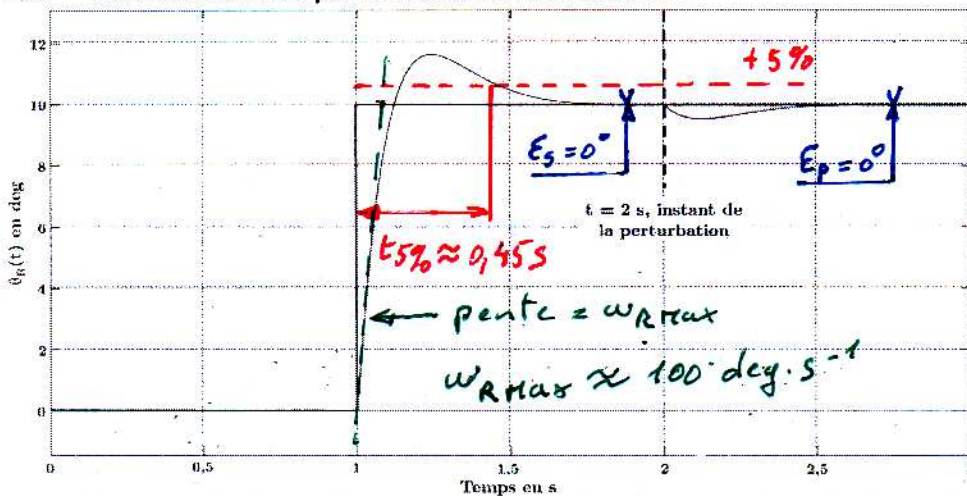 12
10
8
6
4
2
0
θR(t) en deg
+ 5%
Es = 0°
Ep = 0°
t = 2 s, instant de
la perturbation
t5% ≈ 0,45 s
pente = ωRMax
ωRMax ≈ 100 deg. s⁻¹
0 0,5 1 1,5 2 2,5
Temps en s